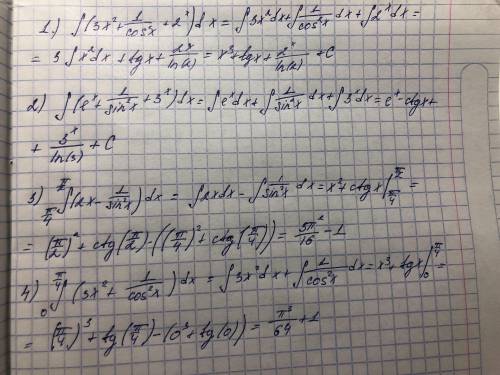 1.) ∫(3x² + 1/cos²x + 2ˣ)dx = ∫3x²dx + ∫1/cos²x dx + ∫2ˣdx =
= 3∫x²dx + tgx + 2ˣ/ln(2) = x³ + tgx + 2ˣ/ln(2) + C
2) ∫(eˣ + 1/sin²x + 3ˣ)dx = ∫eˣdx + ∫1/sin²x dx + ∫3ˣdx = eˣ - ctgx +
+ 3ˣ/ln(3) + C
3) π/4 ∫ π/2 (2x - 1/sin²x)dx = ∫2xdx - ∫1/sin²x dx = x² + ctgx |π/4 π/2 =
= (π/2)² + ctg(π/2) - ((π/4)² + ctg(π/4)) = 3π²/16 - 1
4) 0 ∫ π/4 (3x² + 1/cos²x)dx = ∫3x²dx + ∫1/cos²x dx = x³ + tgx |0 π/4 =
= (π/4)³ + tg(π/4) - (0³ + tg(0)) = π³/64 + 1